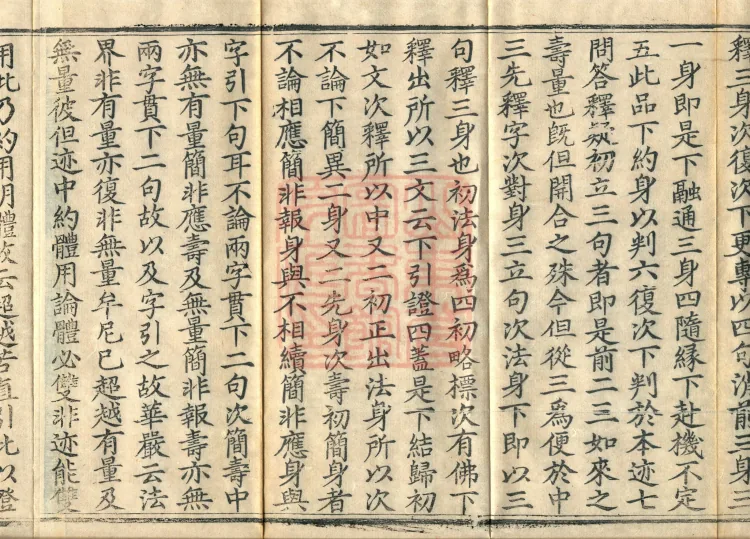 釋三身次復次下更專以四句消前三身三
一身即是下融通三身四隨緣下赴機不定
五此品下約身以判六復次下判於本迹七
問答釋疑初立三句者即是前二三如來之
壽量也旣但開合之殊今但從三為便於中
三先釋字次對身三立句次法身下即以三
句釋三身也初法身為四初略標次有佛下
釋出所以三文云下引證四蓋是下結歸初
如文次釋所以中又二初正出法身所以次
不論下簡異二身又二先身次壽初簡身者
不論相應簡非報身與不相續簡非應身與
字引下句耳不論兩字貫下二句次簡壽中
亦無有量簡非應壽及無量簡非報壽亦無
兩字貫下二句故以及字引之故華嚴云法
界非有量亦復非無量牟尼已超越有量及
無量彼但迹中約體用論體必雙非迹能雙
用此乃約用明體故云超越若直引此以證